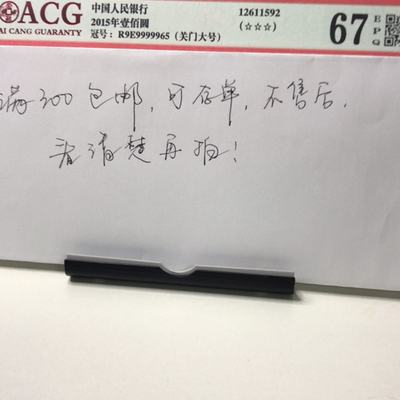 ACG
AI CANG GUARANTY
中国人民银行
2015年壹佰圆
冠号：R9E9999965（关门大号）
12611592
(☆☆☆)
67
EPQ
满300包邮，可存单，不售后，
看清楚再拍！